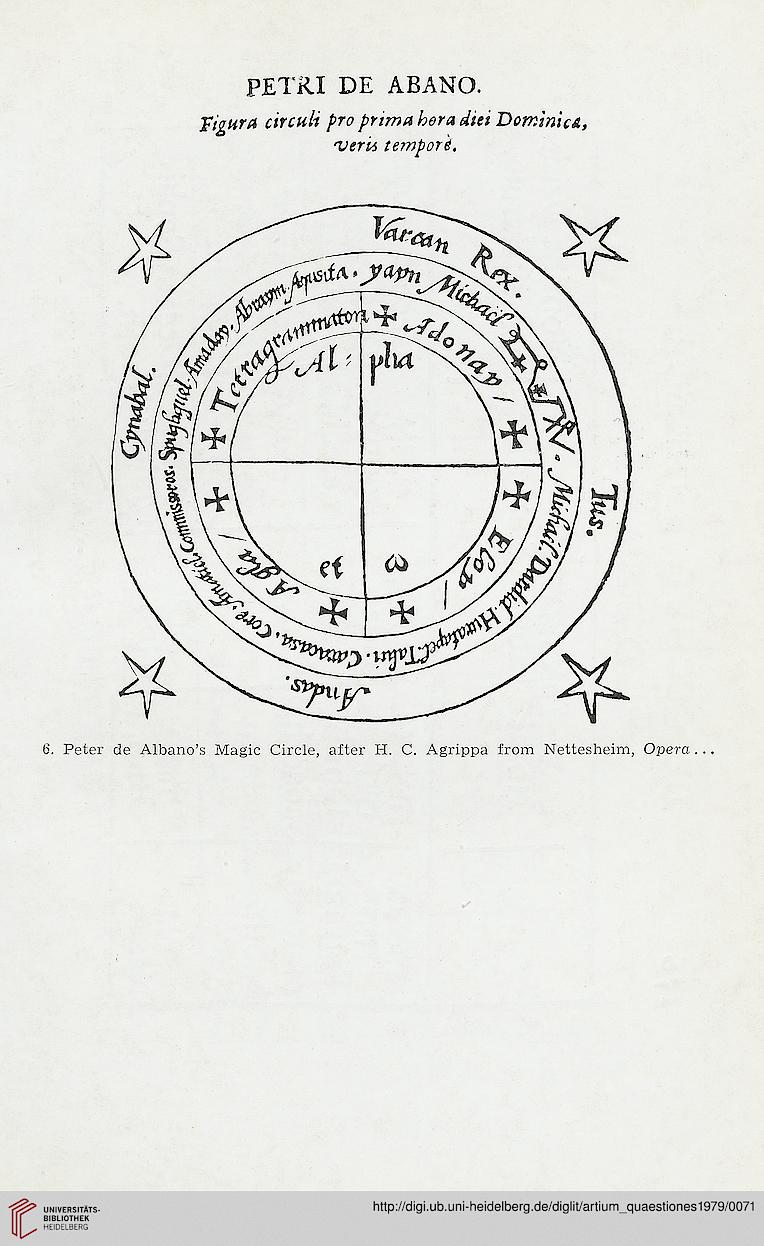 PETRI DE ABANO.
Figura circuli pro prima hora diei Dominicæ,
veris temporè.
Varcan Rex.
Tus.
Andas.
Cynabal.
yayn Michaël
Michail. Dardiel. Huratapel. Talui. Caracasa. Core. Amatiel. Commissoros. Spugliguel. Amaday. Abraym. Aqusita.
Tetragrammaton ✠ Adonay / ✠
✠ Eloy / ✠
✠ Agla / ✠
✠
Al=pha
et ω
6. Peter de Albano's Magic Circle, after H. C. Agrippa from Nettesheim, Opera...
UNIVERSITÄTS-
BIBLIOTHEK
HEIDELBERG
http://digi.ub.uni-heidelberg.de/diglit/artium_quaestiones1979/0071